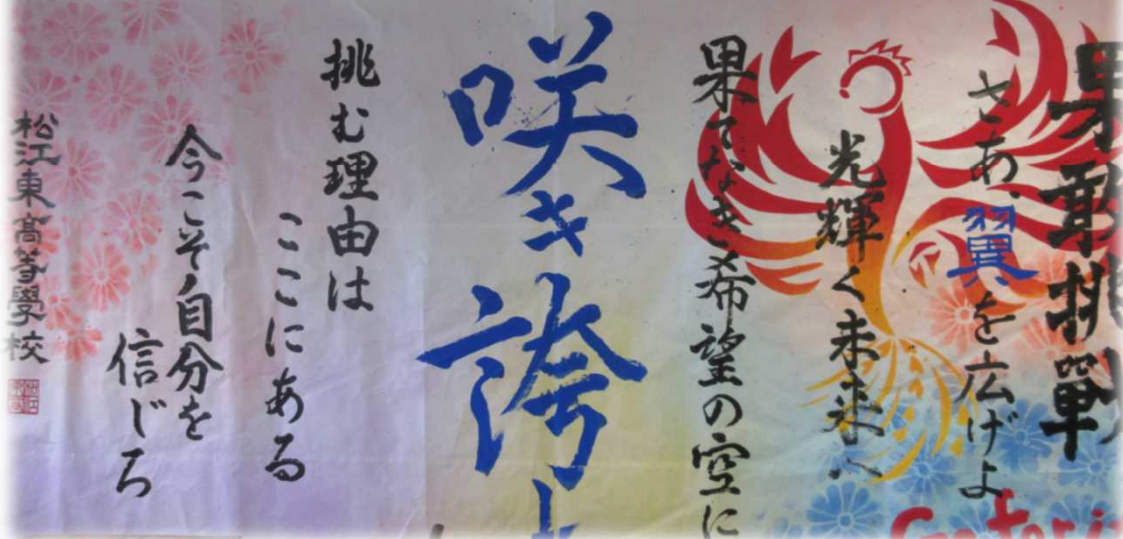 果敢挑戰
さあ、翼を広げよ
光輝く未来へ
果てなき希望の空に
咲き誇
挑む理由は
ここにある
今こそ自分を
信じろ
松江東高等學校